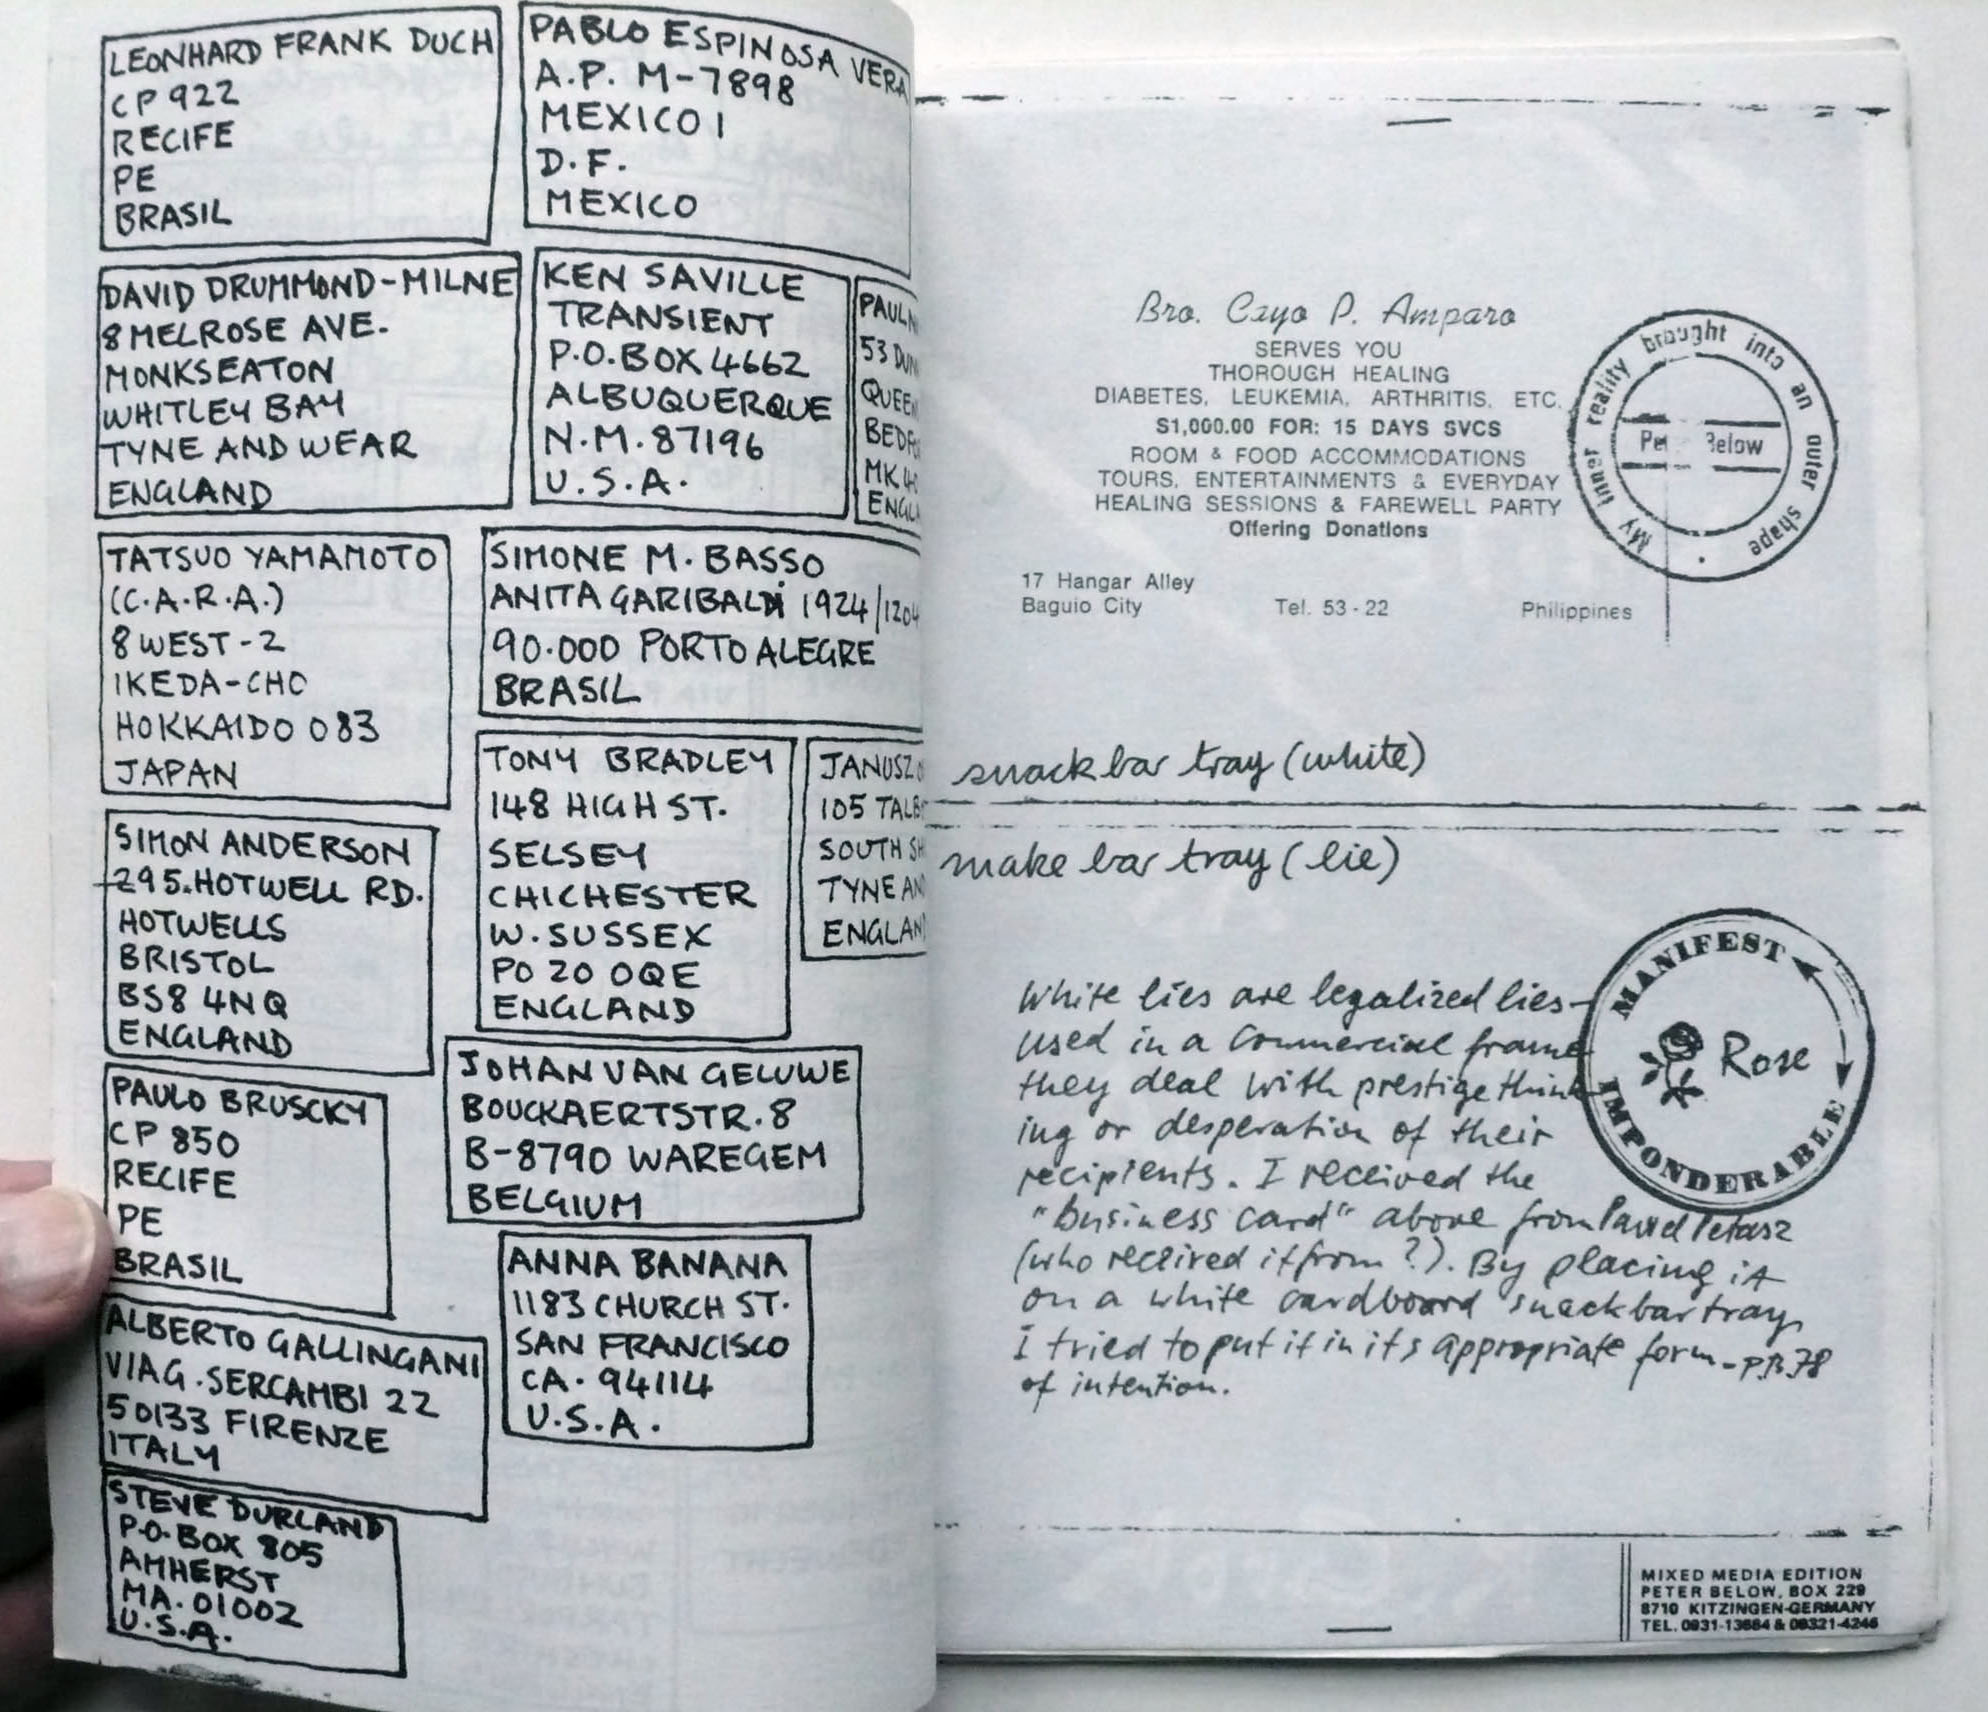 LEONHARD FRANK DUCH
CP 922
RECIFE
PE
BRASIL
PABLO ESPINOSA VERA
A.P. M-7898
MEXICO 1
D.F.
MEXICO
DAVID DRUMMOND-MILNE
8 MELROSE AVE.
MONKSEATON
WHITLEY BAY
TYNE AND WEAR
ENGLAND
KEN SAVILLE
TRANSIENT
P.O. BOX 4662
ALBUQUERQUE
N.M. 87196
U.S.A.
PAUL
53
MK
TATSUO YAMAMOTO
(C.A.R.A.)
8 WEST-2
IKEDA-CHO
HOKKAIDO 083
JAPAN
SIMONE M. BASSO
ANITA GARIBALDI 1924/1204
90.000 PORTO ALEGRE
BRASIL
TONY BRADLEY
148 HIGH ST.
SELSEY
CHICHESTER
W. SUSSEX
PO 20 0QE
ENGLAND
JANUSZ
105
SOUTH
TYNE
ENGLAN
SIMON ANDERSON
295.HOTWELL RD.
HOTWELLS
BRISTOL
BS8 4NQ
ENGLAND
JOHAN VAN GELUWE
BOUCKAERTSTR. 8
B-8790 WAREGEM
BELGIUM
PAULO BRUSCKY
CP 850
RECIFE
PE
BRASIL
ANNA BANANA
1183 CHURCH ST.
SAN FRANCISCO
CA. 94114
U.S.A.
ALBERTO GALLINGANI
VIA G. SERCAMBI 22
50133 FIRENZE
ITALY
STEVE DURLAND
P.O. BOX 805
AMHERST
MA. 01002
U.S.A.
Bro. Cayo P. Amparo
SERVES YOU
THOROUGH HEALING
DIABETES, LEUKEMIA, ARTHRITIS, ETC.
$1,000.00 FOR: 15 DAYS SVCS
ROOM & FOOD ACCOMMODATIONS
TOURS, ENTERTAINMENTS & EVERYDAY
HEALING SESSIONS & FAREWELL PARTY
Offering Donations
17 Hangar Alley
Baguio City Tel. 53-22 Philippines
My inner reality brought into an outer shape
Pe Below
snack bar tray (white)
make bar tray (lie)
White lies are legalized lies-
used in a commercial frame
they deal with prestige think
ing or desperation of their
recipients. I received the
"business card" above from Pawel Petasz
(who received it from ?). By placing it
on a white cardboard snackbartray,
I tried to put it in it's appropriate form - P.B. 78
of intention.
MANIFEST
Rose
IMPONDERABLE
MIXED MEDIA EDITION
PETER BELOW, BOX 229
8710 KITZINGEN-GERMANY
TEL. 0931-13684 & 09321-4246